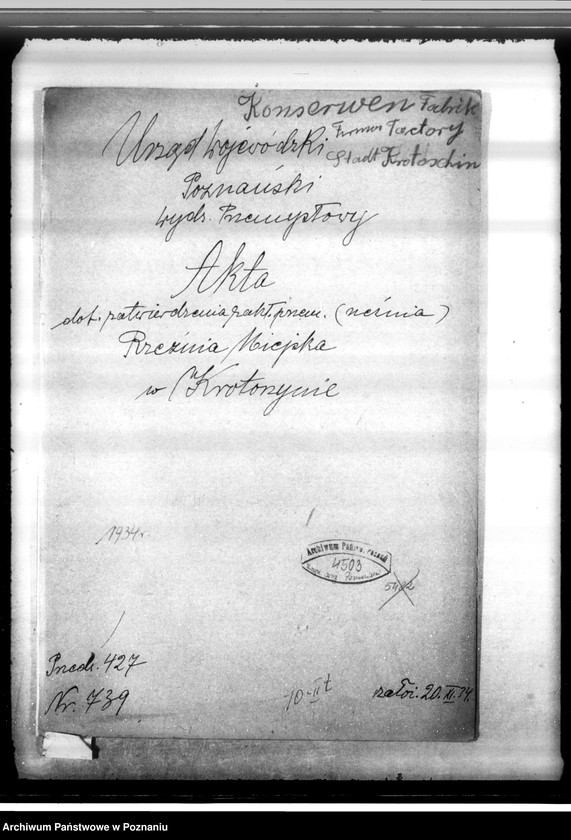 Konserwen Fabrik
Firma Factory
Stadt Krotoschin
Urząd Wojewódzki
Poznański
Wydz. Przemysłowy
Akta
dot. zatwierdzenia zakł. przem. (rzeźnia)
Rzeźnia Miejska
w Krotoszynie
1934 r.
Archiwum Państw. Poznań
4503
Przedr. 427
Nr. 739
10-II t
założ. 20. XI. 34.
Archiwum Państwowe w Poznaniu